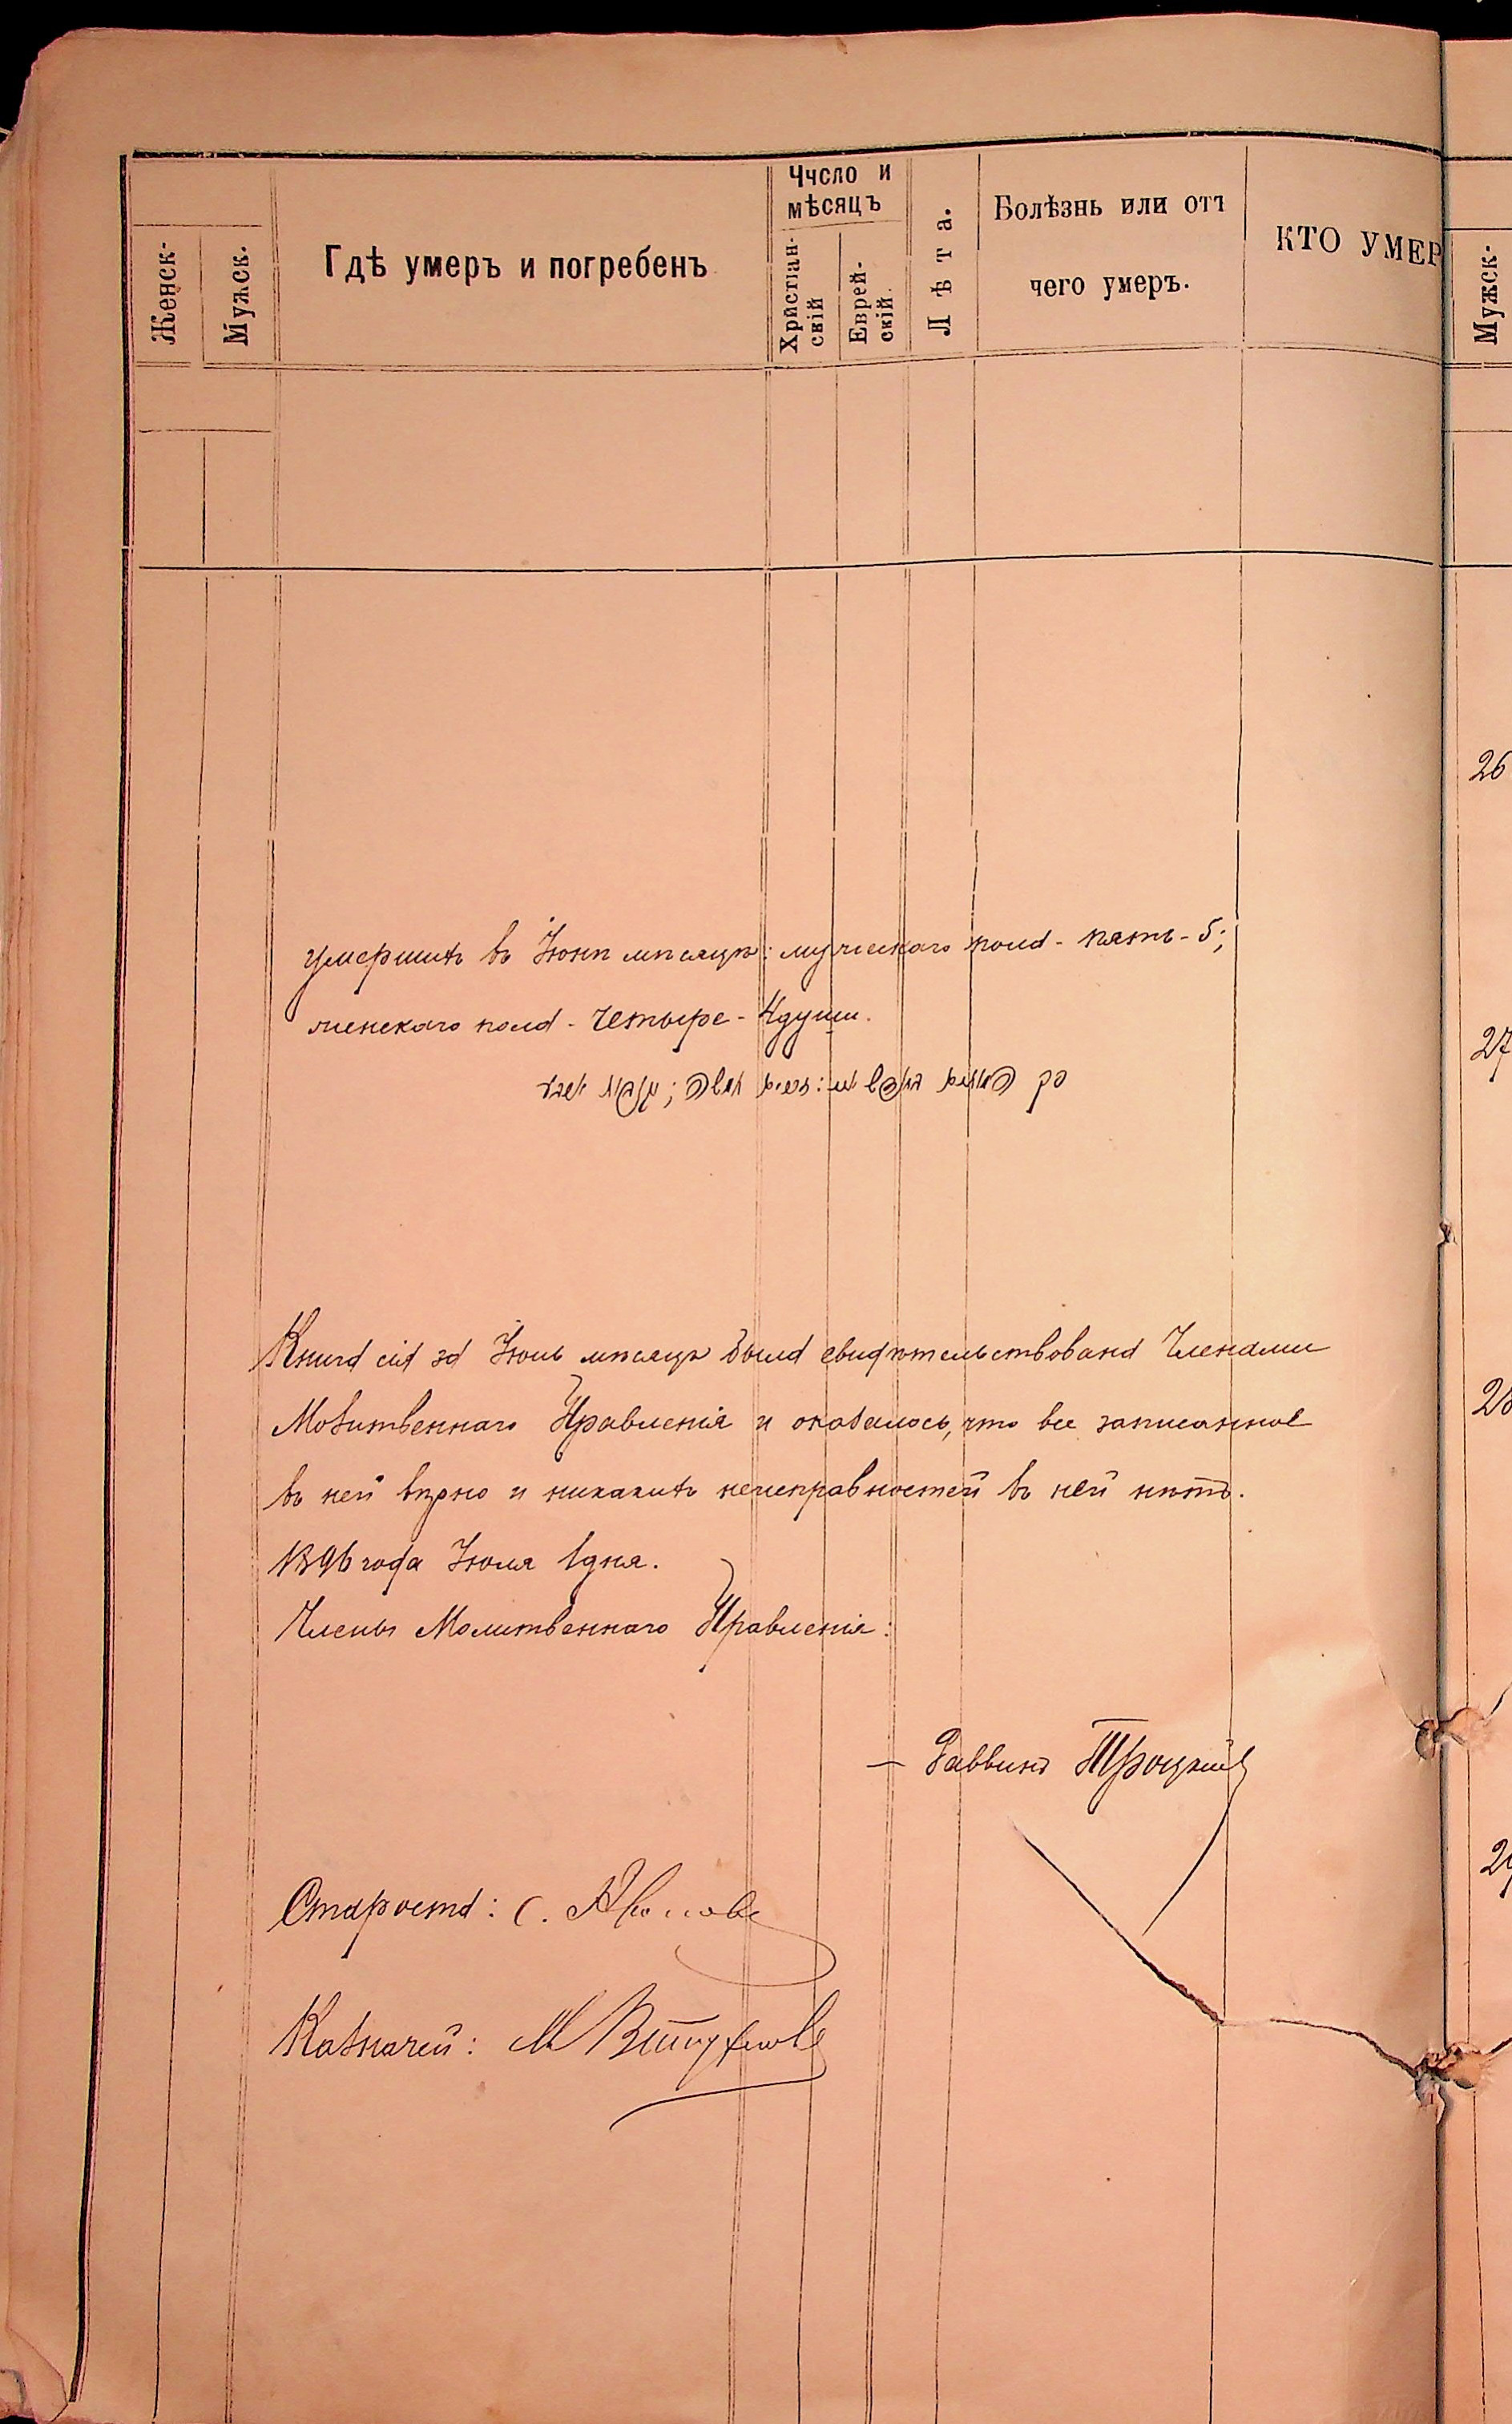 Женск-
Мужск.
Гдѣ умеръ и погребенъ
Число и
мѣсяцъ
Христіан-
скій
Еврей-
скій.
Лѣта.
Болѣзнь или отъ
чего умеръ.
КТО УМЕР
Мужск-
26
27
умершихъ въ Іюнѣ мѣсяцѣ: мужескаго пола - пять - 5;
женскаго пола - четыре - 4 души.
Книга сія за Іюнь мѣсяцъ была свидѣтельствована Членами
Молитвеннаго Правленія и оказалось, что все записанное
въ ней вѣрно и никакихъ неисправностей въ ней нѣтъ.
1896 года Іюля 1 дня.
Члены Молитвеннаго Правленія:
— Раввинъ Троцкій
Староста: С.
Казначей: М